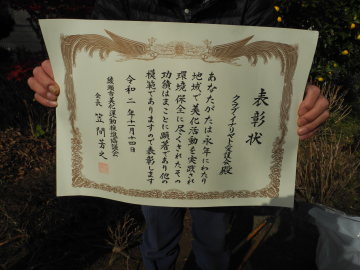 表彰状
殿
あなたがたは永年にわたり
地域で美化活動を実践され
環境保全に尽くされたその
功績はまことに顕著であり他の
模範でありますので表彰します
令和二年十一月十四日
綾瀬市美化運動推進協議会
会長 笠間